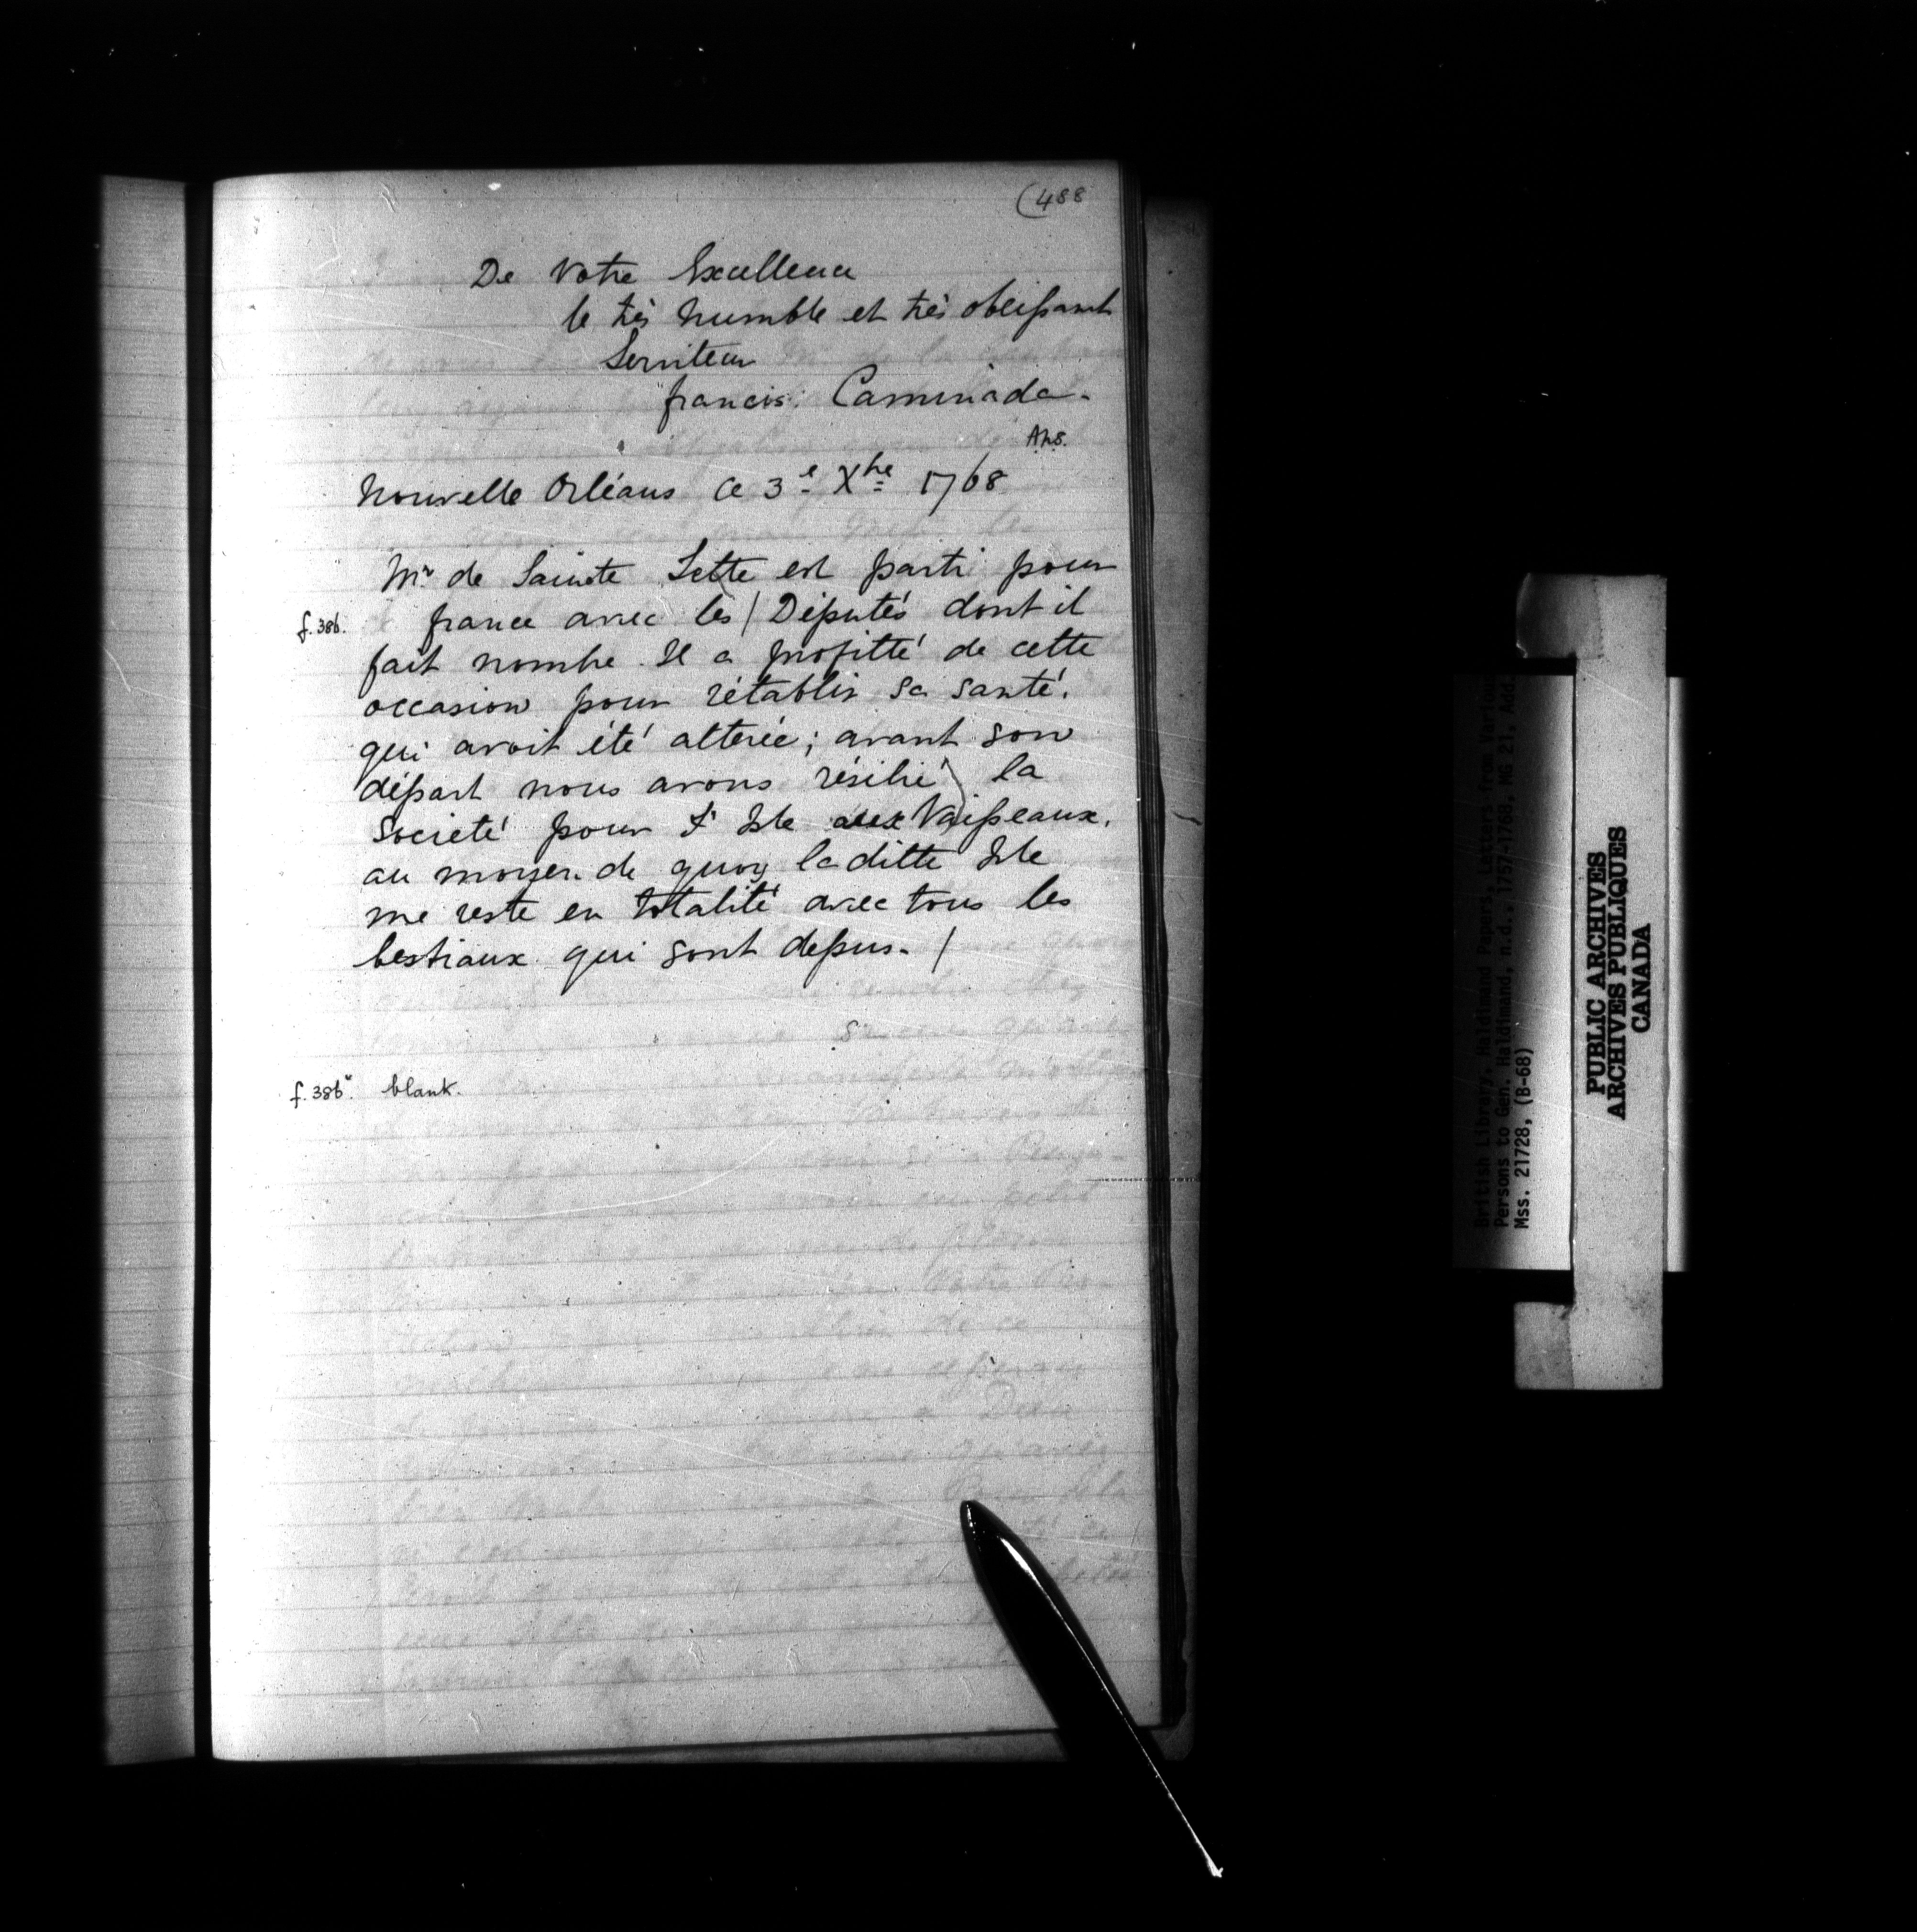 (488
De Votre Excellence
le très humble et très obeissant
Serviteur
francis. Caminada.
Ans.
Nouvelle Orléans Ce 3e Xbre 1768
Mr de Sainte Lette est parti pour
f. 386. france avec les / Députés dont il
fait nombre. Il a profitté de cette
occasion pour rétablir sa santé.
qui avoit été altérée; avant son
départ nous avons résilié la
Société pour l'Isle aux Vaisseaux.
au moyen de quoy laditte Isle
me reste en totalité avec tous les
bestiaux qui sont dessus. /
f. 386v. blank.
British Library, Haldimand Papers, Letters from Various
Persons to Gen. Haldimand, n.d., 1757-1768, MG 21, Add.
Mss. 21728, (B-68)
PUBLIC ARCHIVES
ARCHIVES PUBLIQUES
CANADA